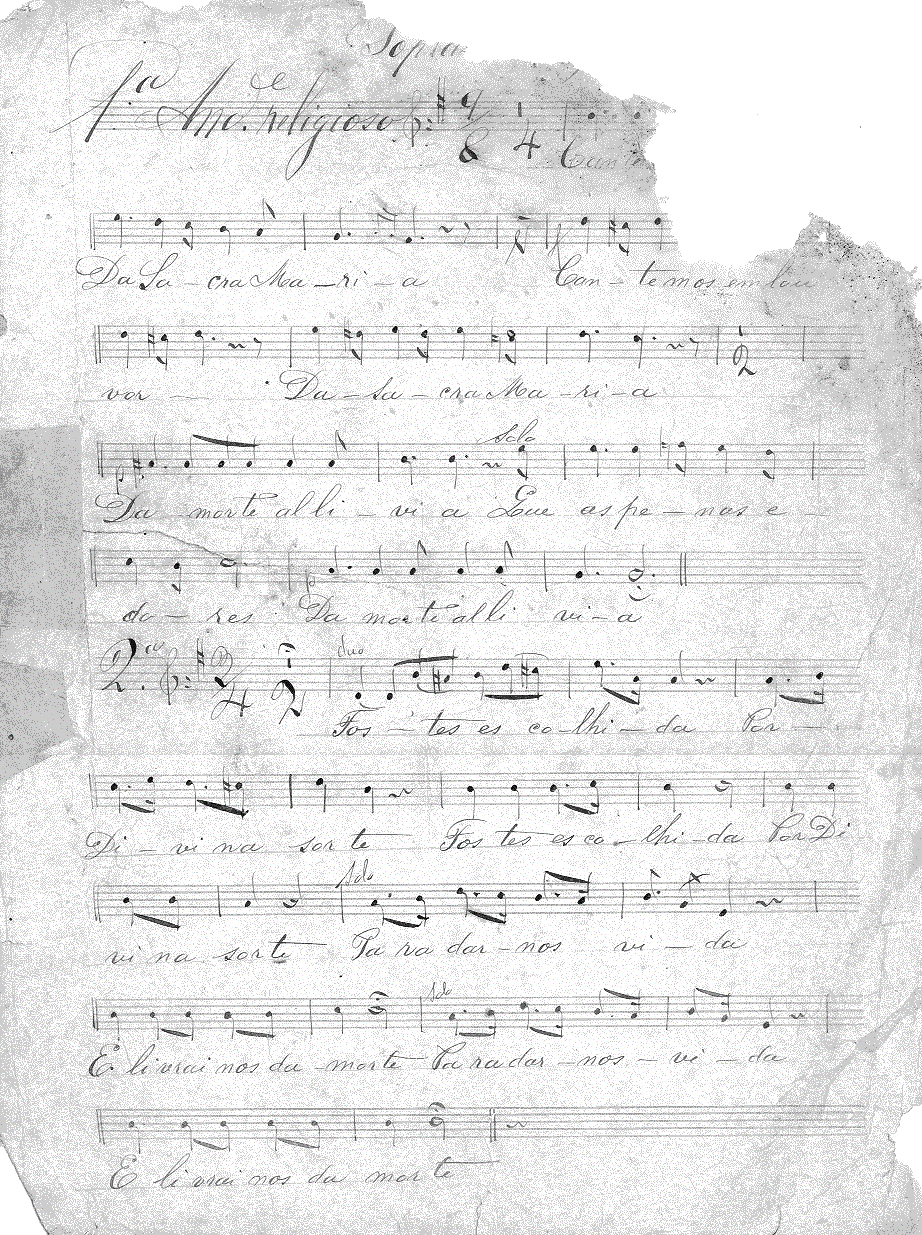 Sopra
1.a And.e religioso 9 8 1 4 Cante
Da Sa - cra Ma - ri - a Can - temos em lou
vor Da - Sa - cra Ma - ri - a
solo
Da morte alli - vi a Que as pe - nas e -
do - res Da morte alli vi - a
2.co 2 4 2 duo
Fos - tes es co - lhi - da Por -
Di - vi na sor te Fos tes es co - lhi - da Por Di
solo
vi na sorte Pa ra dar - nos vi - da
solo
E li vrai nos da morte Pa ra dar - nos - vi - da
E li vrai nos da mor te